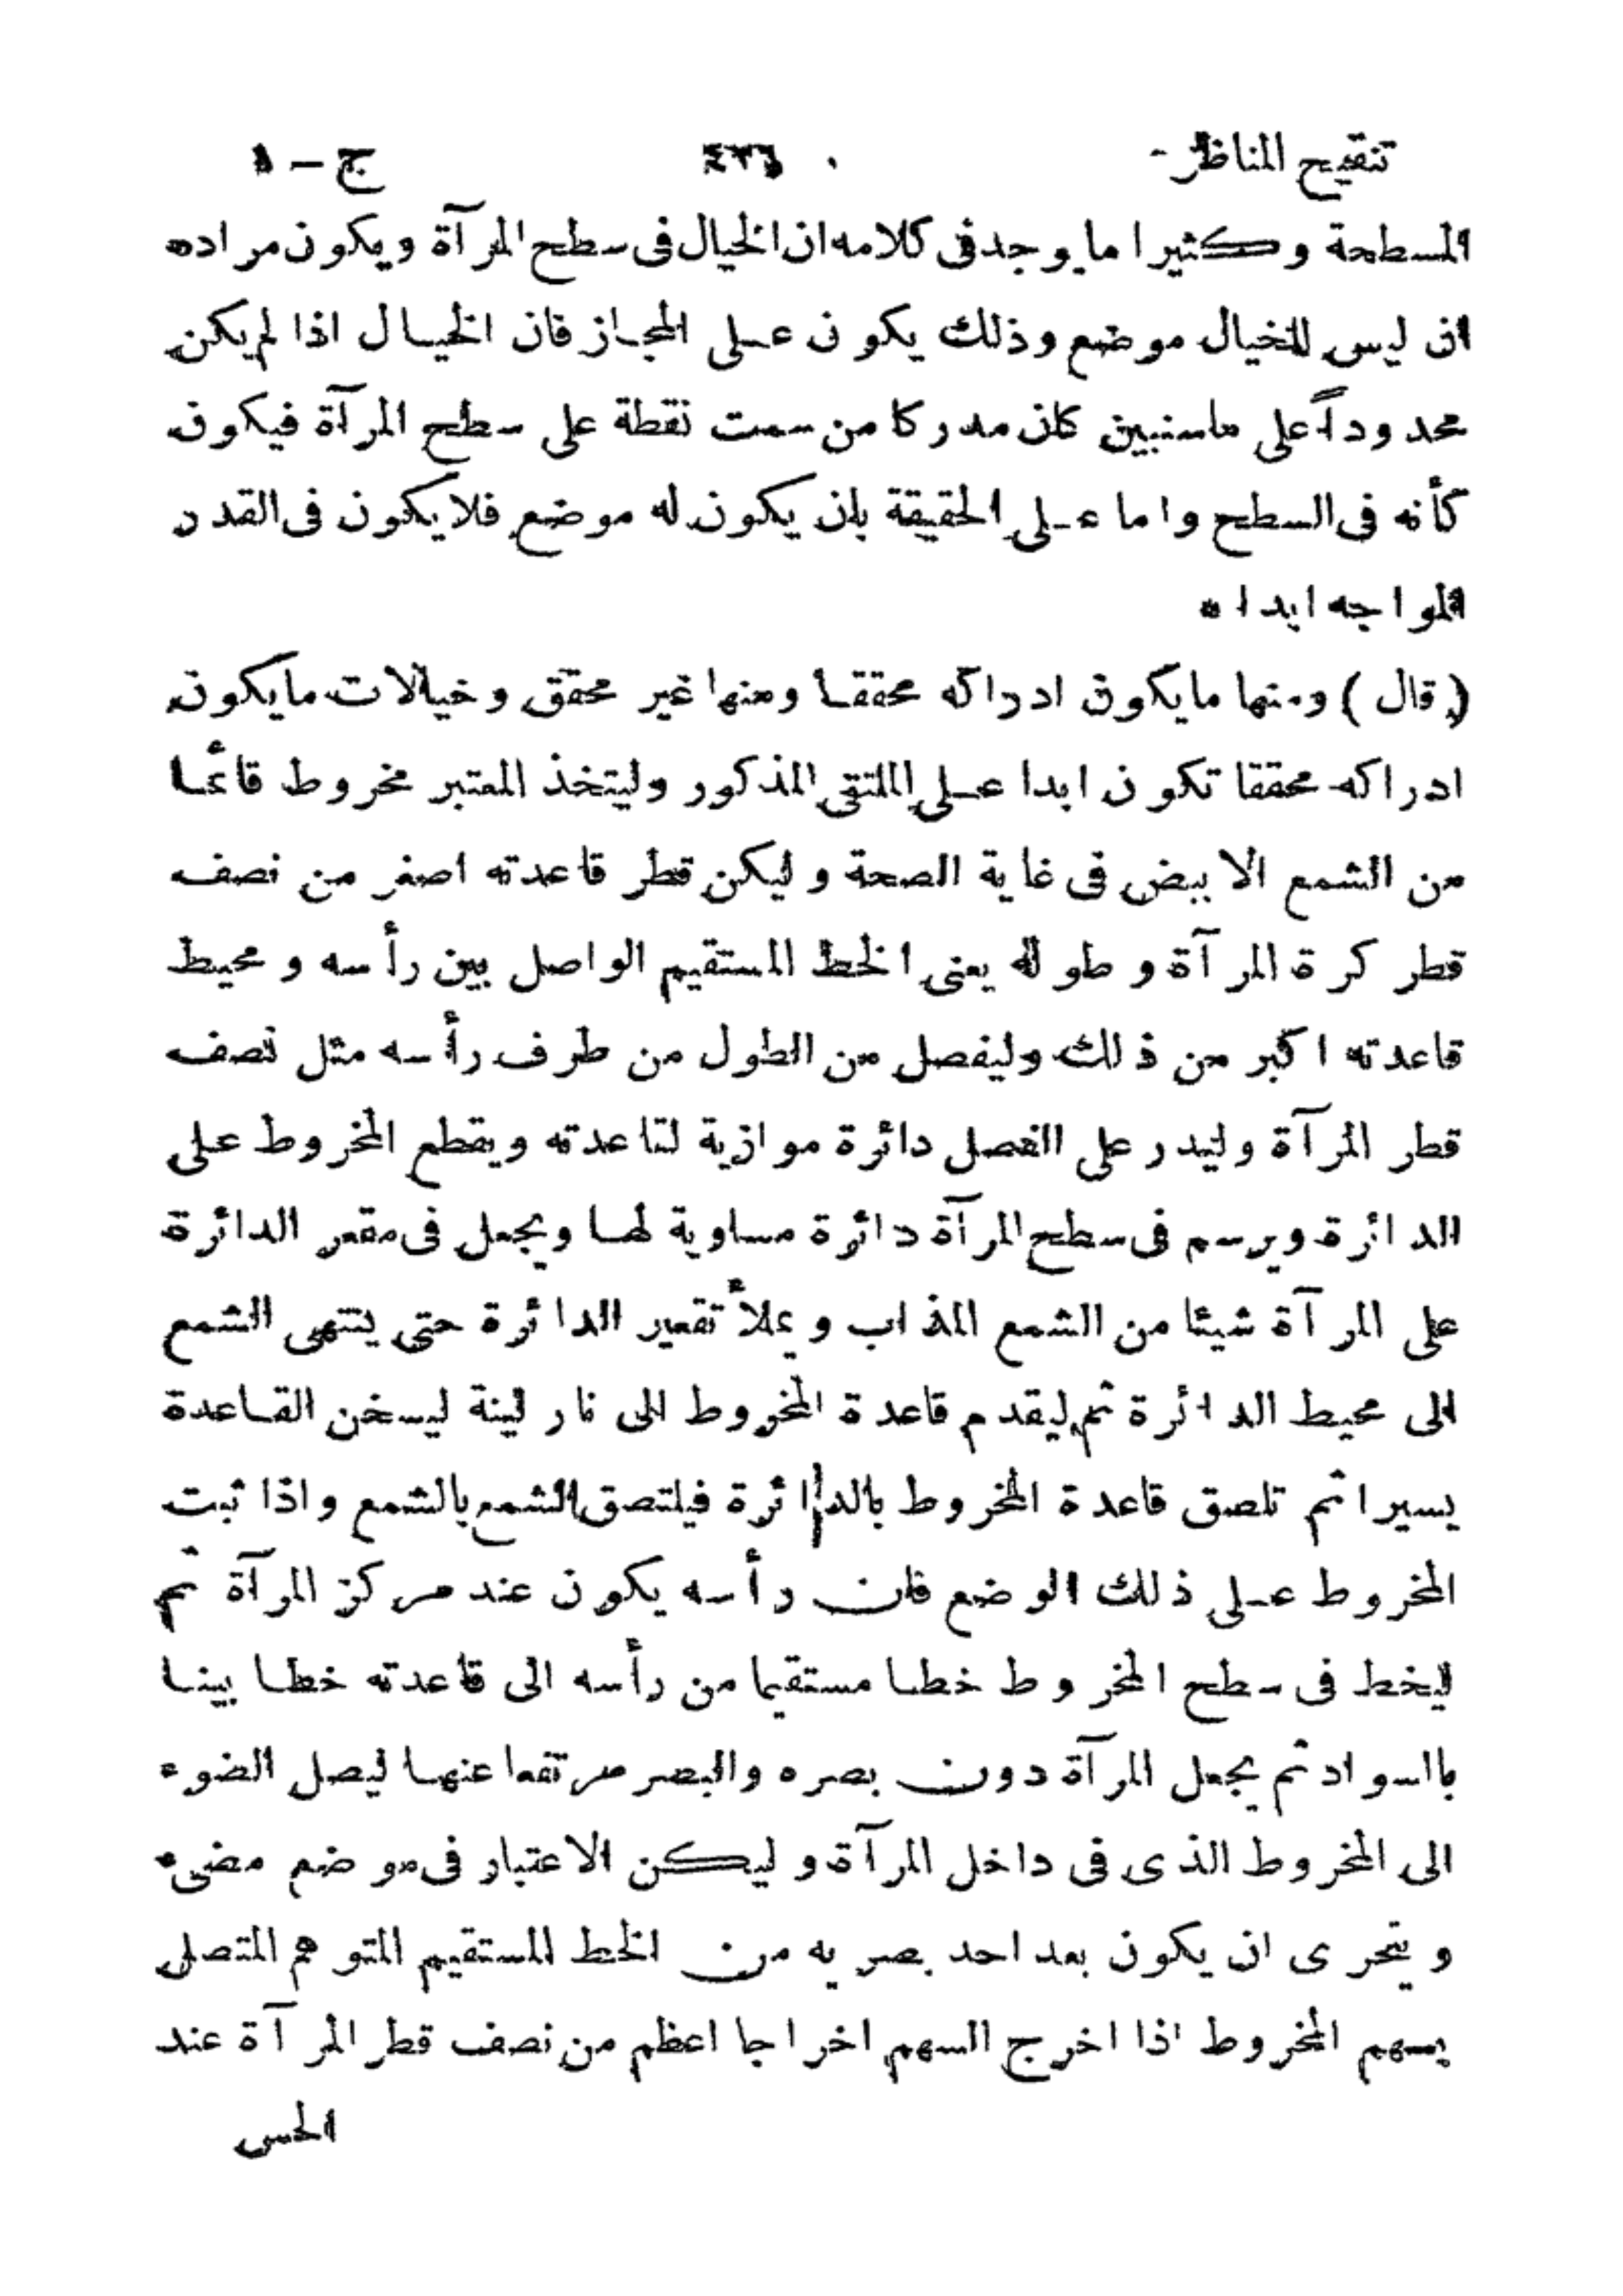 تنقيح المناظر - ٤٣٦ ج – ١
المسطحة وكثيرا ما يوجد فى كلامه ان الخيال فى سطح المرآة ويكون مراده
ان ليس للخيال موضع وذلك يكون على المجاز فان الخيال اذا لم يكن
محدوداً على ماسنبين كان مدركا من سمت نقطة على سطح المرآة فيكون
كأنه فى السطح واما على الحقيقة بان يكون له موضع فلا يكون فى القدر
المواجه ابدا *
(قال) ومنها ما يكون ادراكه محققا ومنها غير محقق وخيالات ما يكون
ادراكه محققا تكون ابدا على الملتقى المذكور وليتخذ المعتبر مخروط قائما
من الشمع الابيض فى غاية الصحة وليكن قطر قاعدته اصغر من نصف
قطر كرة المرآة وطوله يعنى الخط المستقيم الواصل بين رأسه ومحيط
قاعدته اكبر من ذلك وليفصل من الطول من طرف رأسه مثل نصف
قطر المرآة وليدر على الفصل دائرة موازية لقاعدته ويقطع المخروط على
الدائرة ويرسم فى سطح المرآة دائرة مساوية لها ويجعل فى مقعر الدائرة
على المرآة شيئا من الشمع المذاب ويملأ تقعير الدائرة حتى ينتهى الشمع
الى محيط الدائرة ثم ليقدم قاعدة المخروط الى نار لينة ليسخن القاعدة
يسيرا ثم تلصق قاعدة المخروط بالدائرة فيلتصق الشمع بالشمع واذا ثبت
المخروط على ذلك الوضع فان رأسه يكون عند مركز المرآة ثم
ليخط فى سطح المخروط خطا مستقيما من رأسه الى قاعدته خطا بينا
بالسواد ثم يجعل المرآة دون بصره والبصر مرتفعا عنها ليصل الضوء
الى المخروط الذى فى داخل المرآة وليكن الاعتبار فى موضع مضىء
ويتحرى ان يكون بعد احد بصريه من الخط المستقيم المتوهم المتصل
بسهم المخروط اذا اخرج السهم اخراجا اعظم من نصف قطر المرآة عند
الحس